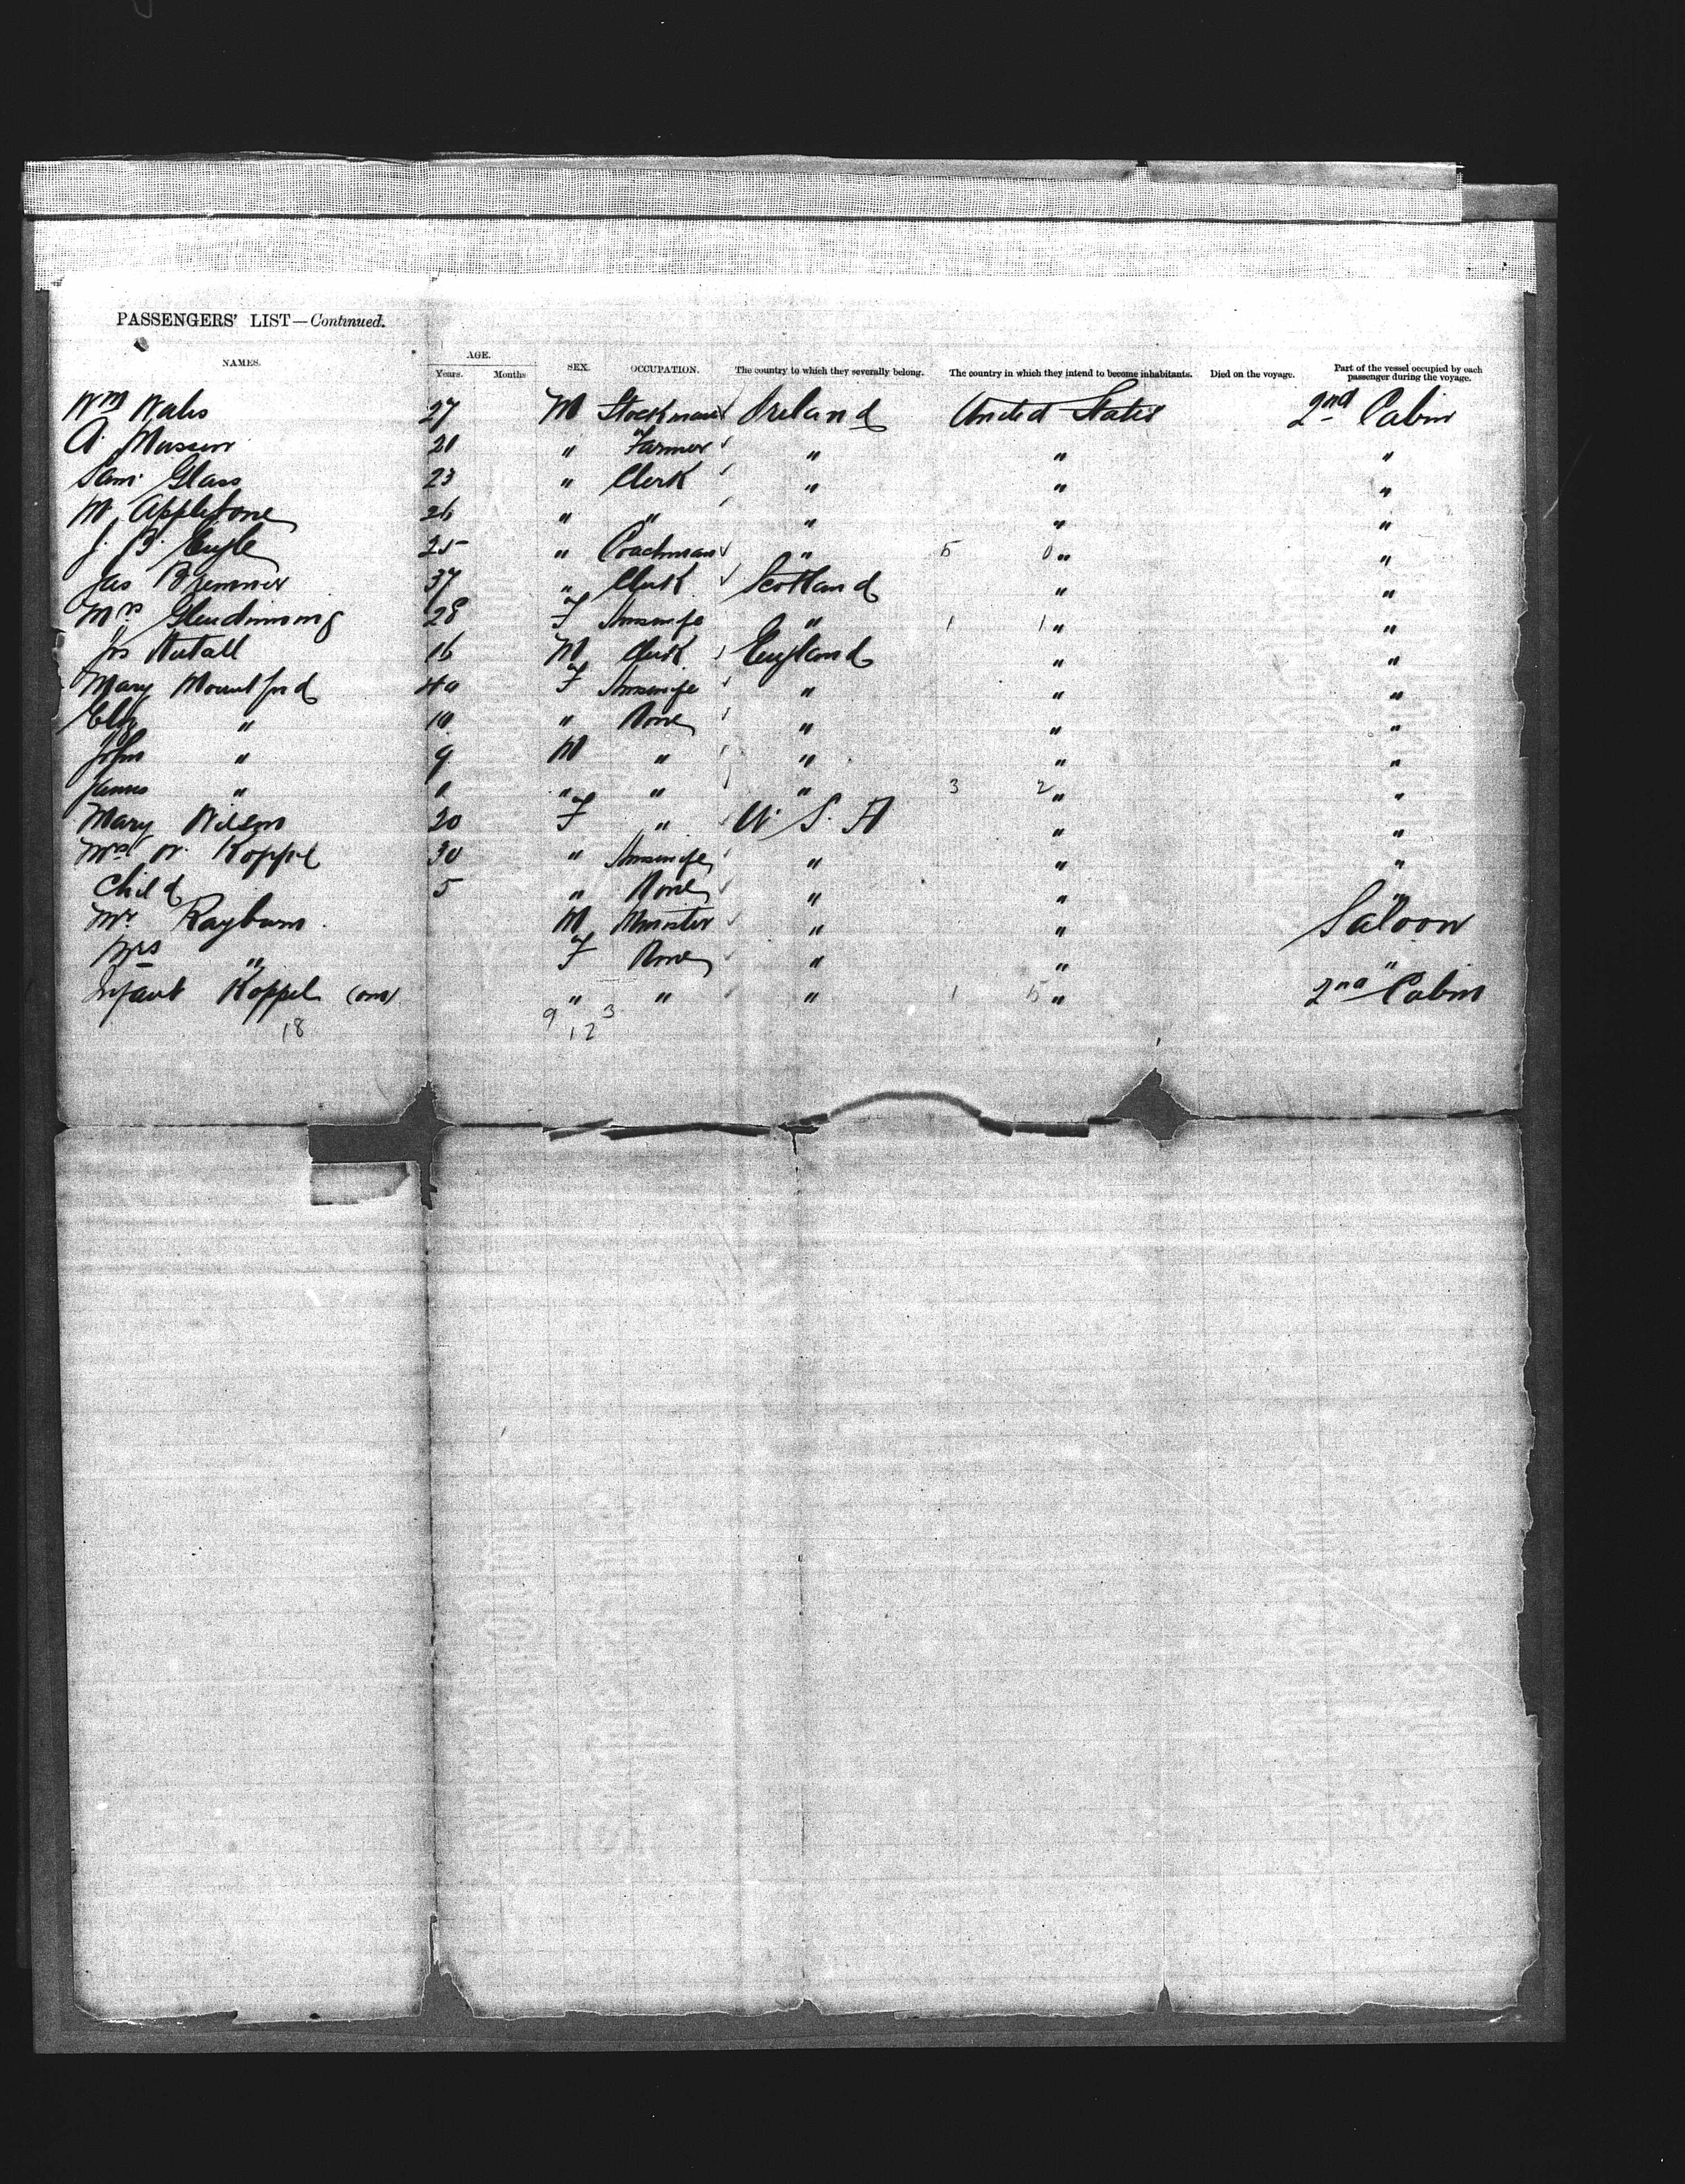 PASSENGERS' LIST—Continued.
NAMES. AGE. Years. Months SEX. OCCUPATION. The country to which they severally belong. The country in which they intend to become inhabitants. Died on the voyage. Part of the vessel occupied by each passenger during the voyage.
Wm 27 M Stockman Ireland United States 2nd Cabin
A. " Farmer " " "
Sam Glass 23 " Clerk " " "
M. Appletone 26 " " " " "
J. B. 25 " Coachman " 5 0 " "
Jas Bremner 37 " Clerk Scotland " "
Mrs Glendinning 28 F Housewife " 1 1 " "
Jos Nutall 16 M Clerk England " "
Mary Mountford F Housewife " " "
Eliz " " None " " "
John " 9 M " " " "
James " " " " 3 2 " "
Mary Wilson 20 F " U. S. A " "
Mrs W. Koppel 30 " Housewife " " "
Child 5 " None " " "
Mr. Rayburn M Minister " " Saloon
Mrs " F None " " "
Infant Koppel " " " 1 5 " 2nd Cabin
18 9 12 3